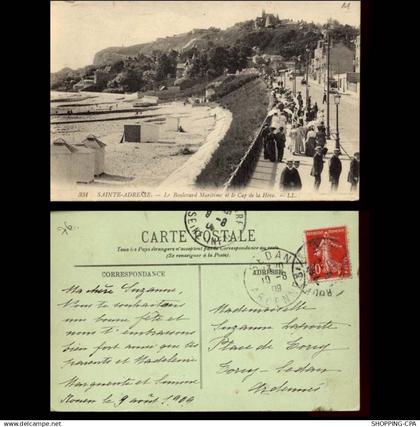 M
334 SAINTE-ADRESSE. - Le Boulevard Maritime et le Cap de la Hève. LL
CARTE POSTALE
Tous les Pays étrangers n'acceptent pas la Correspondance au recto
(Se renseigner à la Poste).
CORRESPONDANCE
ADRESSE
Ma chère Suzanne,
Nous te souhaitons
une bonne fête et
nous t'embrassons
bien fort ainsi que tes
parents et Madeleine
Marguerite et Simone
Rouen le 9 août 1909
Mademoiselle
Suzanne
Place de Torcy
Torcy Sedan
Ardennes
SEDAN
ARDENNES
09
10
www.delcampe.net